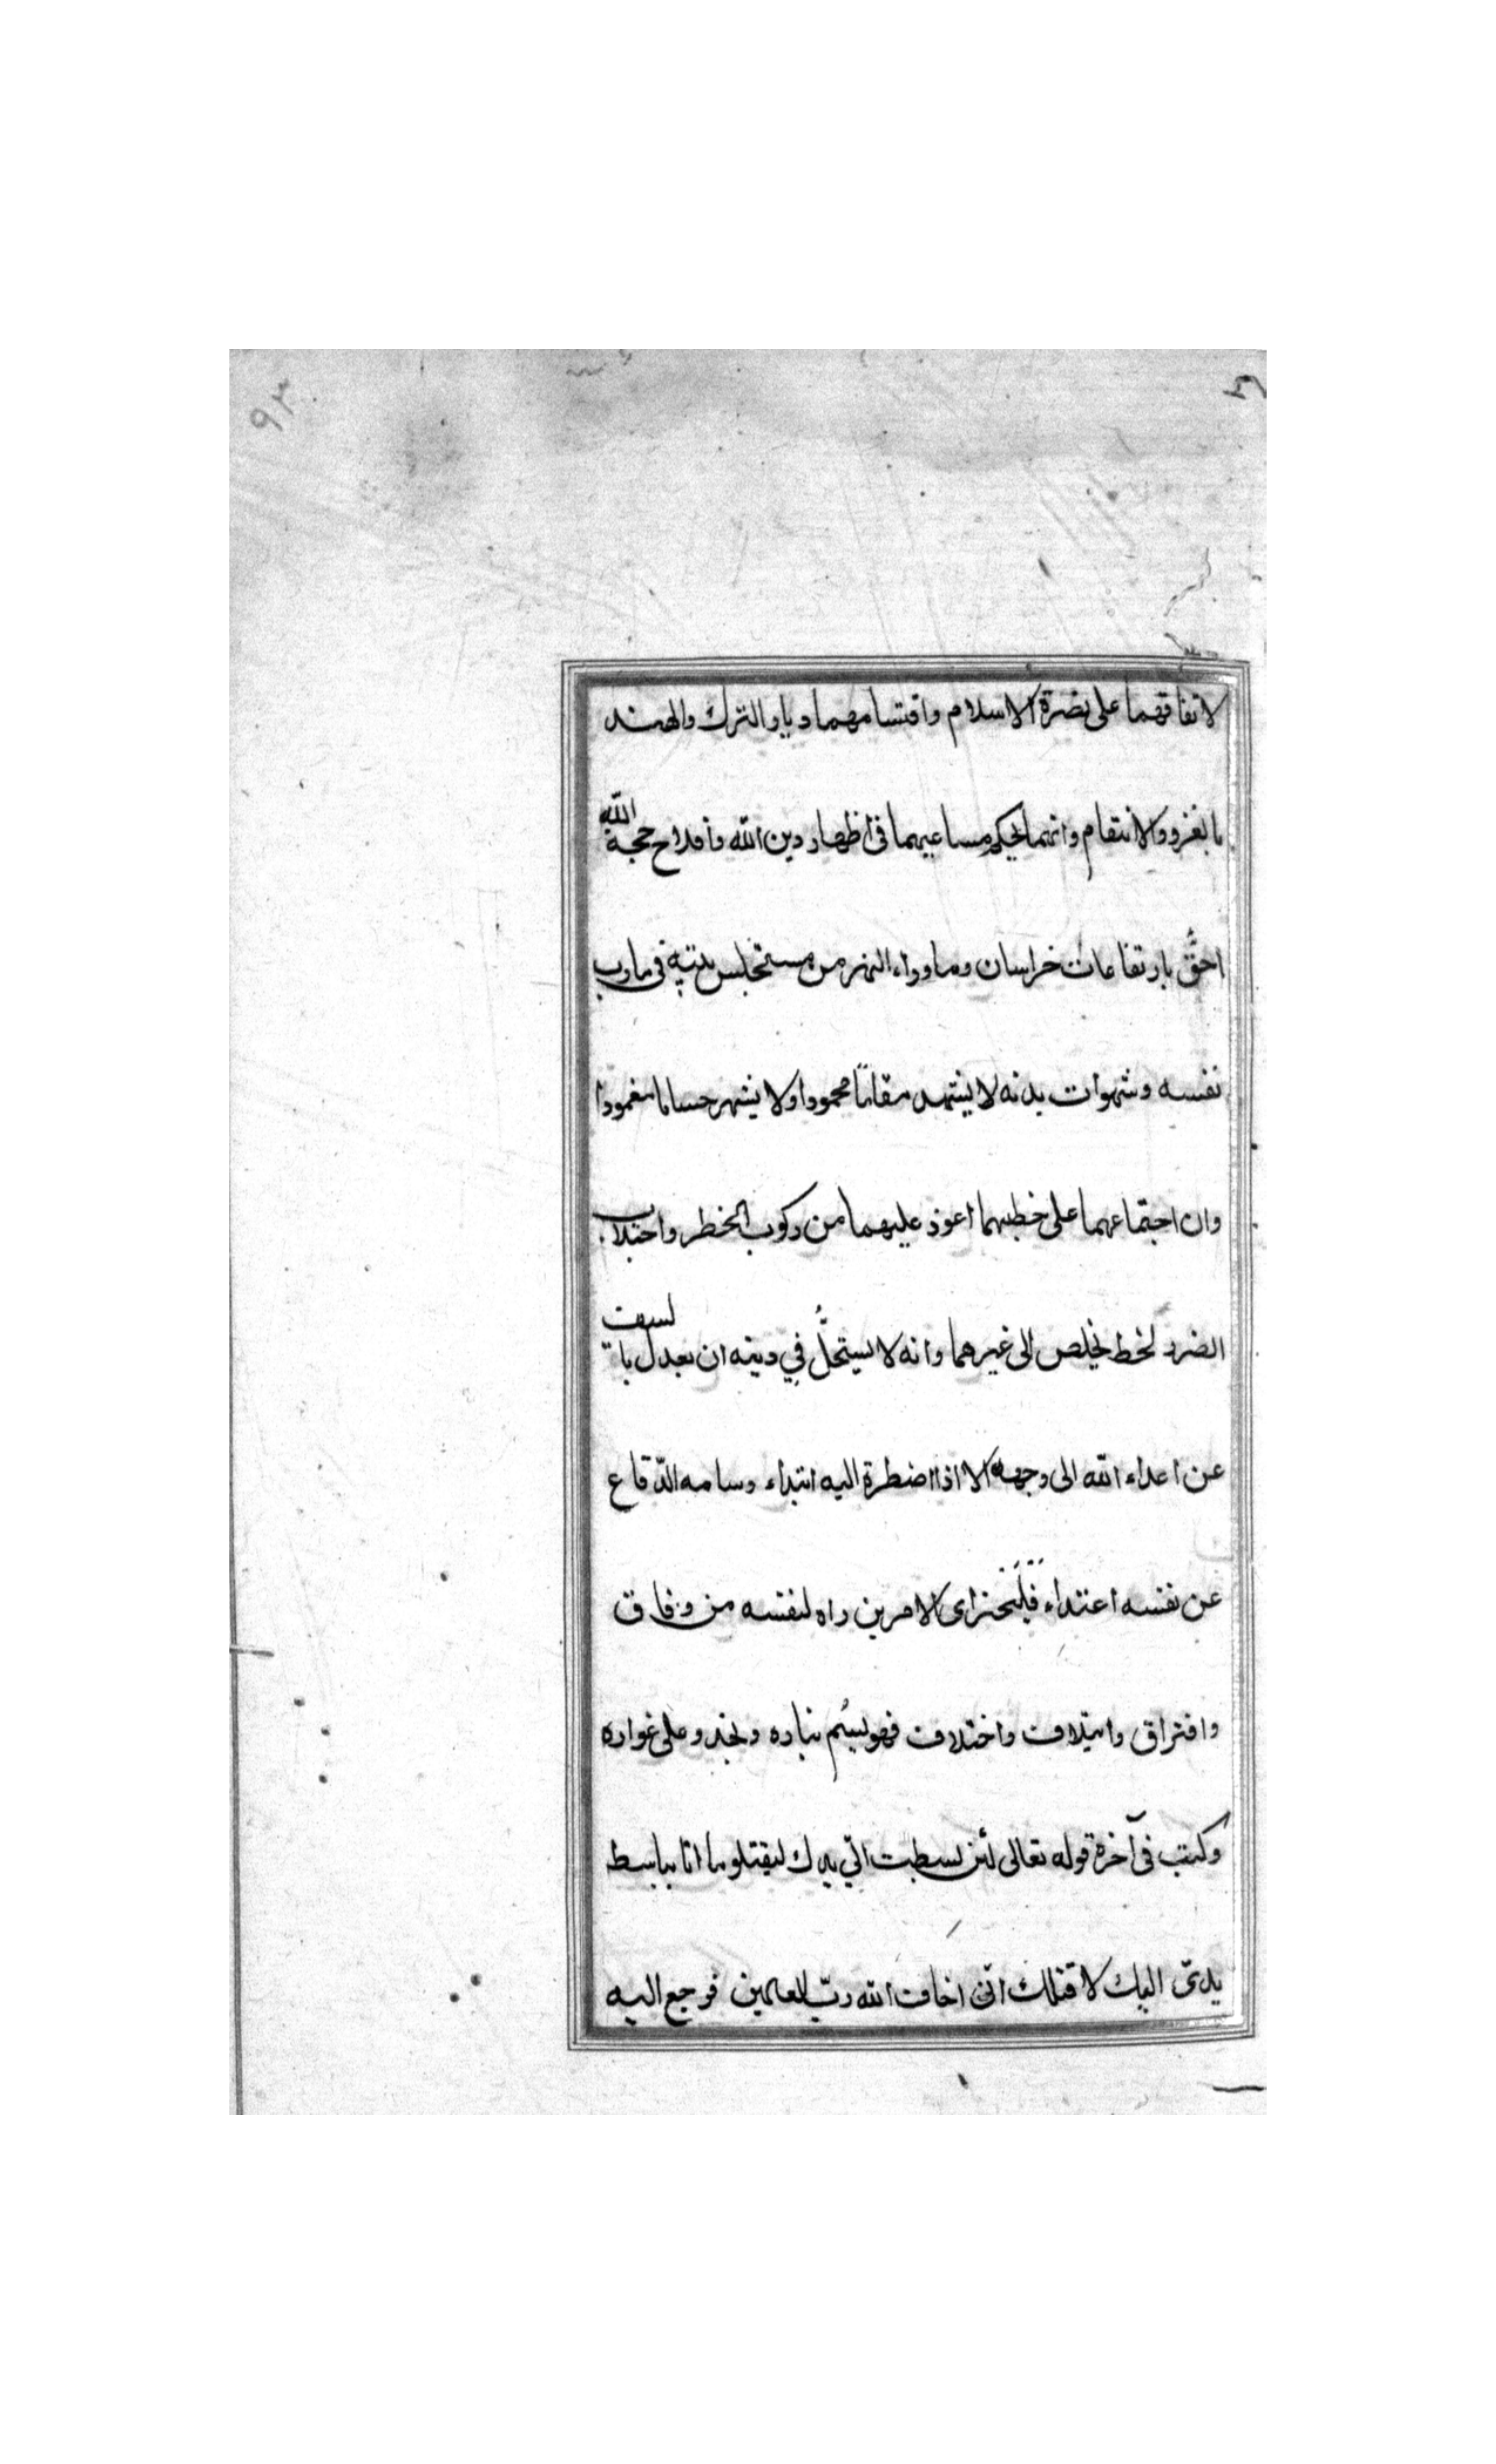 ٩٢
لاتفاقهما على نصرة الاسلام واقتسامهما ديار الترك والهند
بالغزو والانتقام وانهما بحكم مساعيهما فى اظهار دين الله وأفلاح حجة الله
احقُّ بارتفاعات خراسان وماوراء النهر من مستحلس بيته فى مارب
نفسه وشهوات بدنه لا يشهد مقامًا محمودا ولا يشهر حساما مغمودا
وان اجتماعهما على خطبهما اعود عليهما من ركوب الخطر واجتلاب
الضرر لحظ يخلص الى غيرهما وانه لا يستحلُّ فِي دينه ان يعدل بالسيف
عن اعداء الله الى وجهه الا اذا اضطرة اليه ابتداء وسامه الدّفاع
عن نفسه اعتداء فَلْيَختر اى الامرين راه لنفسه من وفاق
وافتراق وايتلاف واختلاف فهو يسُم بناره ويخدو على غراره
وكتب فى آخرة قوله تعالى لئن بسطت الىّ يدك ليقتلو ما انا بباسط
يدىَ اليك لاقتلك انّى اخاف الله ربّ العالمين فرجع اليه